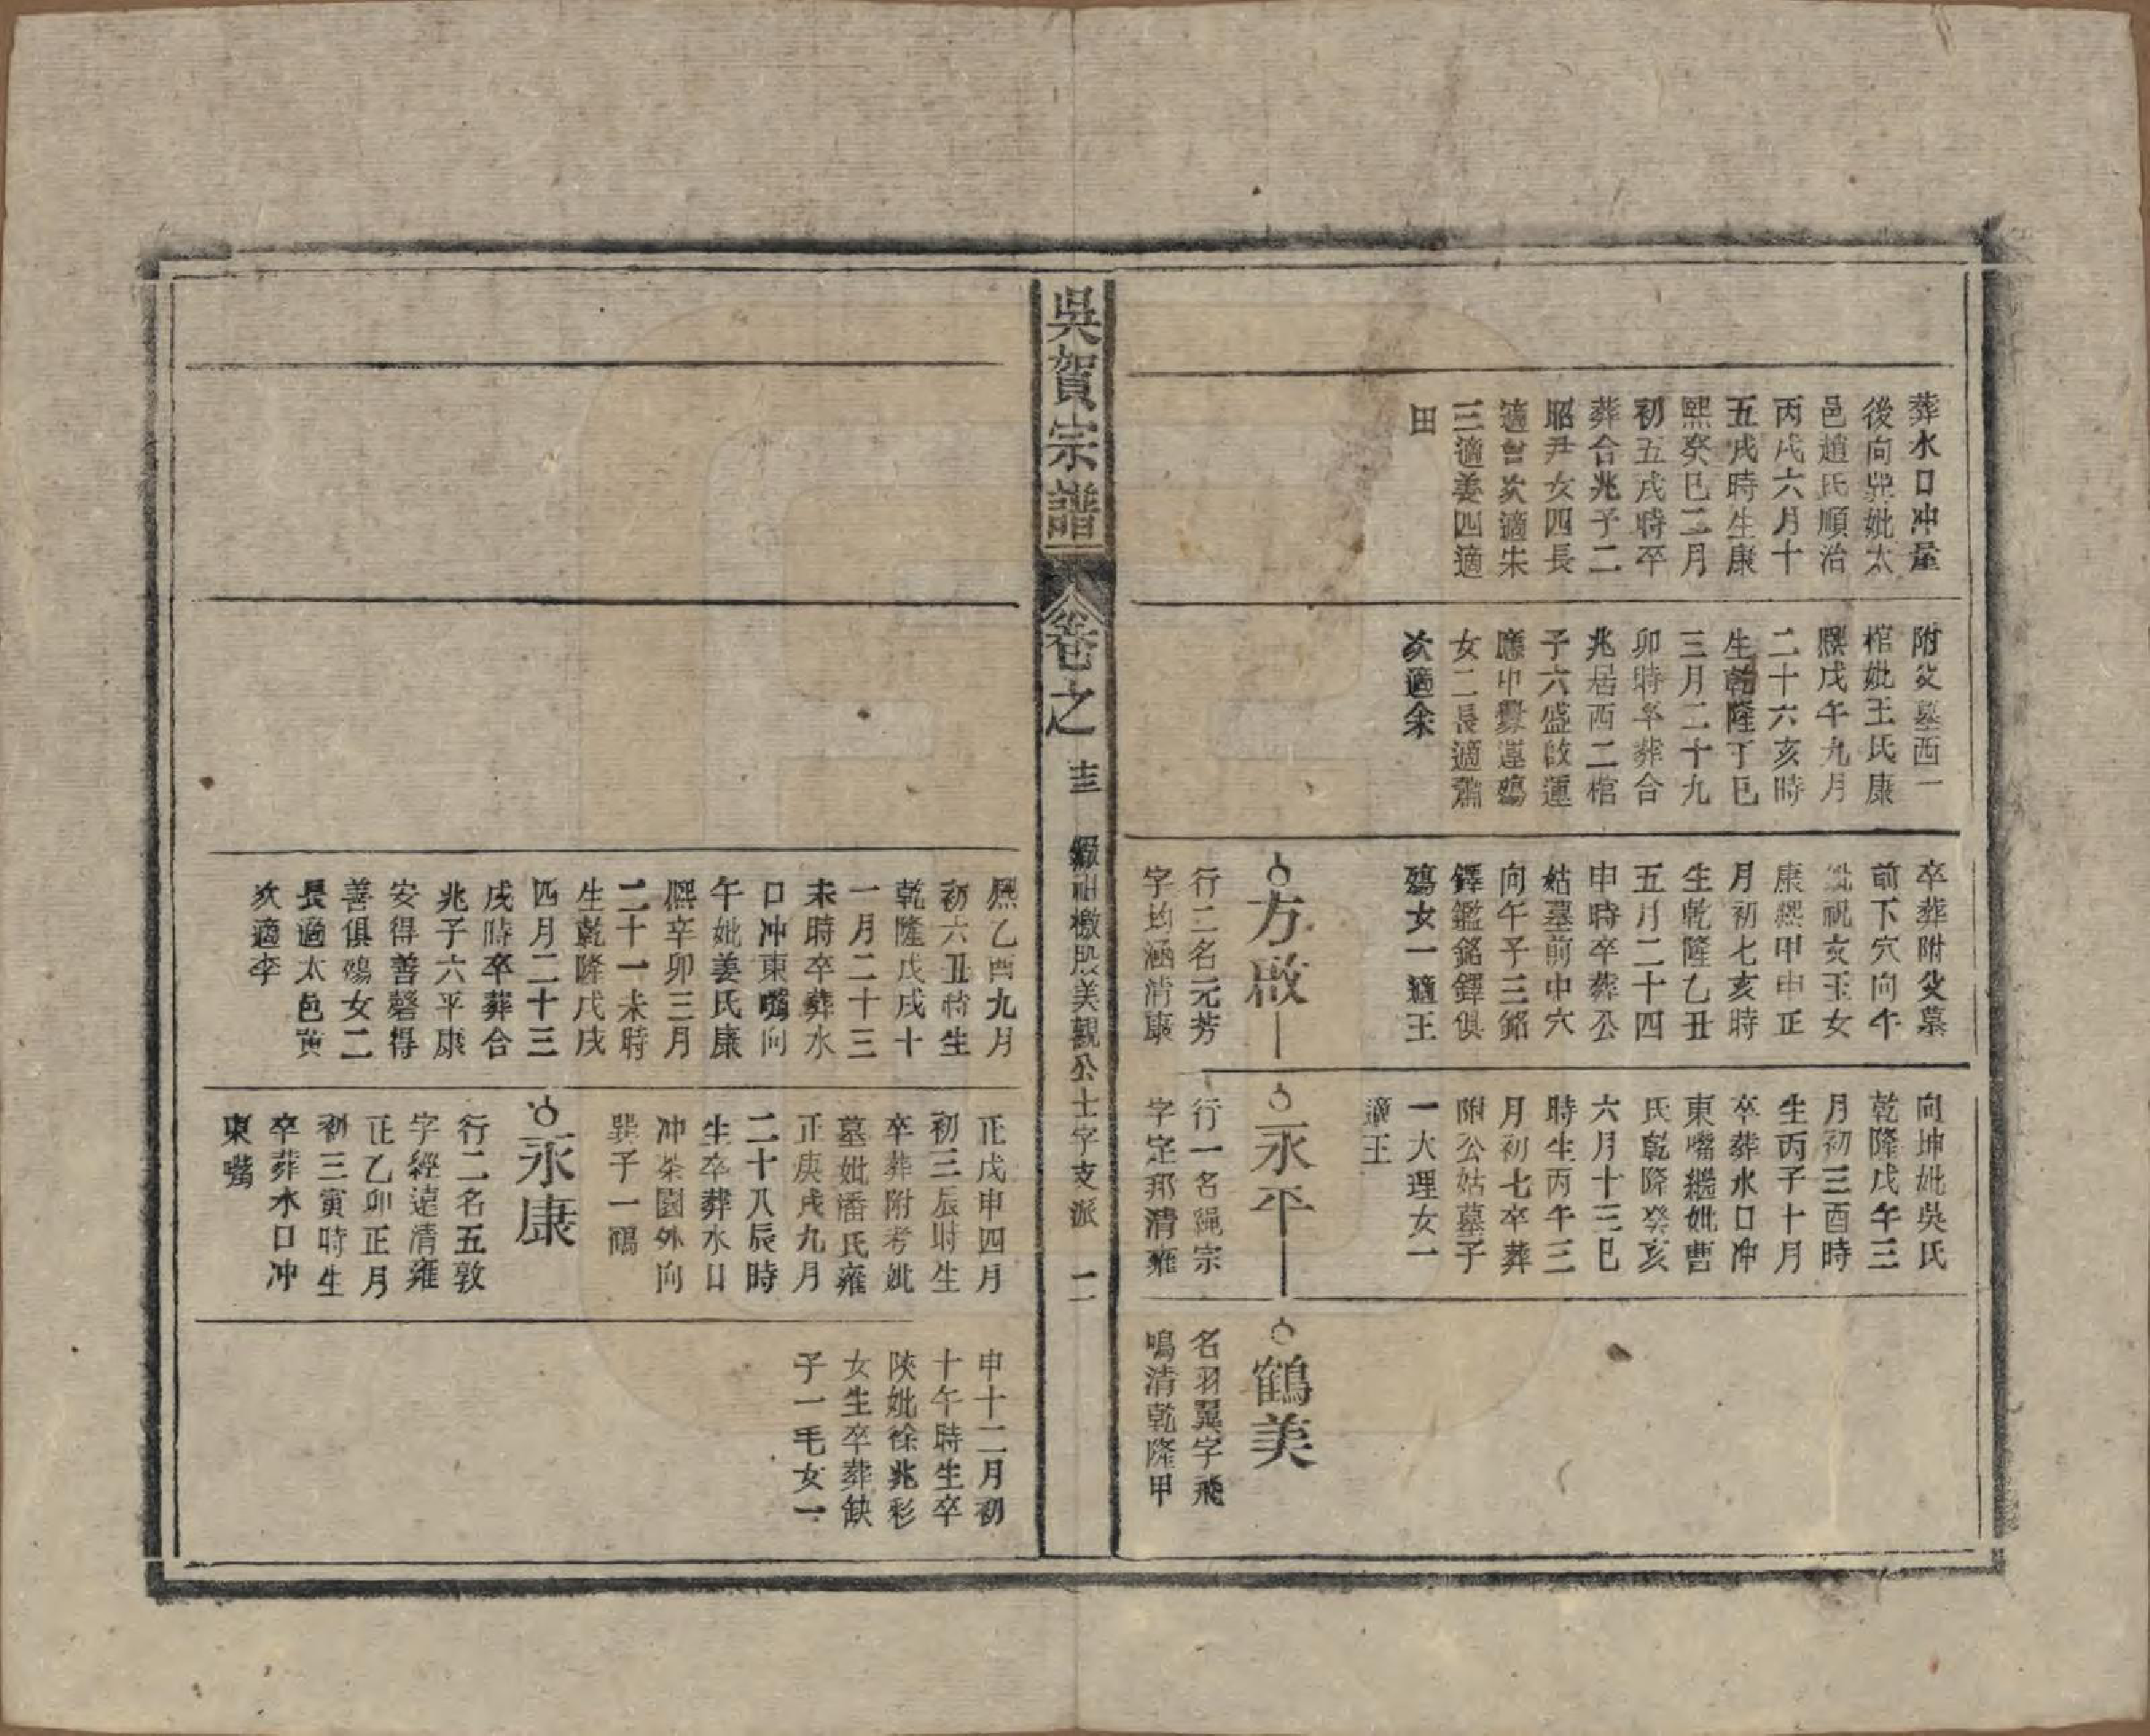 葬水口冲屋
後向巽妣太
邑趙氏順治
丙戌六月十
五戌時生康
熙癸巳二月
初五戌時卒
葬合兆子二
昭尹女四長
適曾次適朱
三適姜四適
田
附父墓西一
棺妣王氏康
熙戊午九月
二十六亥時
生乾隆丁巳
三月二十九
卯時卒葬合
兆居西二棺
子六盛啟運
應中 運殤
女二長適蕭
次適余
卒葬附父墓
前下穴向午
妣祝友玉女
康熙甲申正
月初七亥時
生乾隆乙丑
五月二十四
申時卒葬公
姑墓前中穴
向午子三銘
鐸鑑銘鐸俱
殤女一適王
方啟
行二名元芳
字均涵清康
向坤妣吳氏
乾隆戊午三
月初三酉時
生丙子十月
卒葬水口冲
東嘴繼妣曹
氏乾隆癸亥
六月十三巳
時生丙午三
月初七卒葬
附公姑墓子
一大理女一
適王
永平
行一名繩宗
字定邦清雍
鶴美
名羽翼字飛
鳴清乾隆甲
吳賀宗譜
卷之 圭 緞祖檄股美觀公士字支派 二
熙乙酉九月
初六丑時生
乾隆戊戌十
一月二十三
未時卒葬水
口冲東嘴向
午妣姜氏康
熙辛卯三月
二十一未時
生乾隆戊戌
四月二十三
戌時卒葬合
兆子六平康
安得善磬得
善俱殤女二
長適太邑黄
次適李
正戊申四月
初三辰時生
卒葬附考妣
墓妣潘氏雍
正庚戌九月
二十八辰時
生卒葬水口
冲茶園外向
巽子一鶴
永康
行二名五敦
字經遠清雍
正乙卯正月
初三寅時生
卒葬水口冲
東嘴
申十二月初
十午時生卒
陝妣徐兆彩
女生卒葬缺
子一毛女一